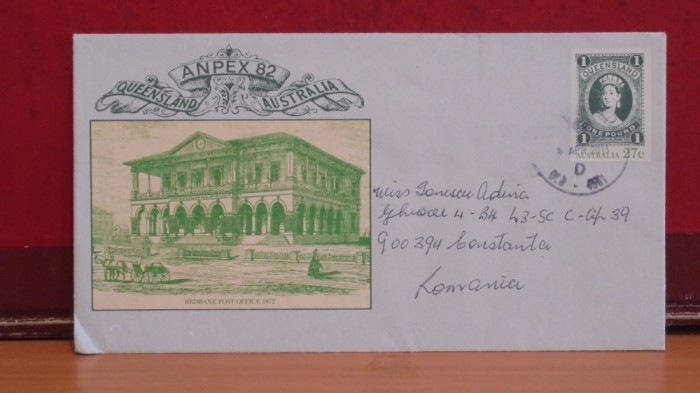 ANPEX 82
QUEENSLAND AUSTRALIA
BRISBANE POST OFFICE 1872
1 1
QUEENSLAND
ONE POUND
1 1
AUSTRALIA 27c
D
Miss Ionescu Adina
4-B4 L3-Sc C-Ap 39
900394 Constanta
Romania